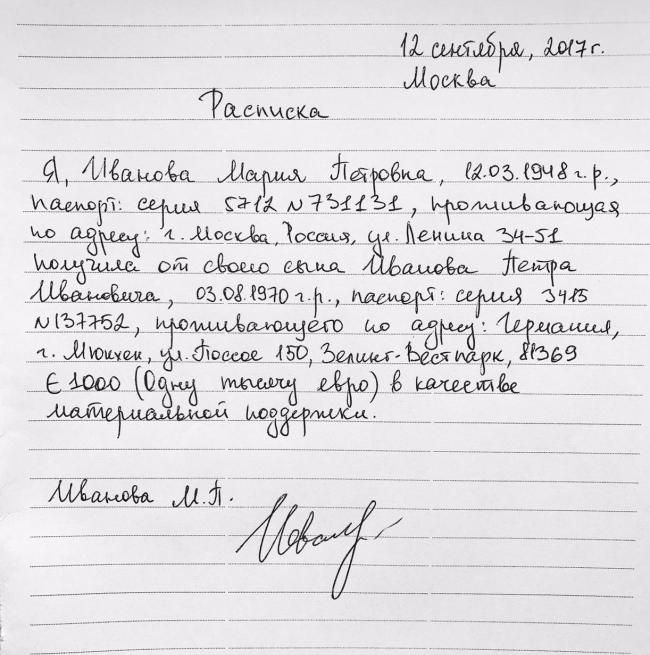 12 сентября, 2017г.
Москва
Расписка
Я, Иванова Мария Петровна, 12.03.1948 г.р.,
паспорт: серия 5712 №731131, проживающая
по адресу: г. Москва, Россия, ул. Ленина 34-51
получила от своего сына Иванова Петра
Ивановича, 03.08.1970 г.р., паспорт: серия 3415
№137752, проживающего по адресу: Германия,
г. Мюнхен, ул. Поссое 150, Зелинг-Вестпарк, 81369
€ 1000 (Одну тысячу евро) в качестве
материальной поддержки.
Иванова М.П.